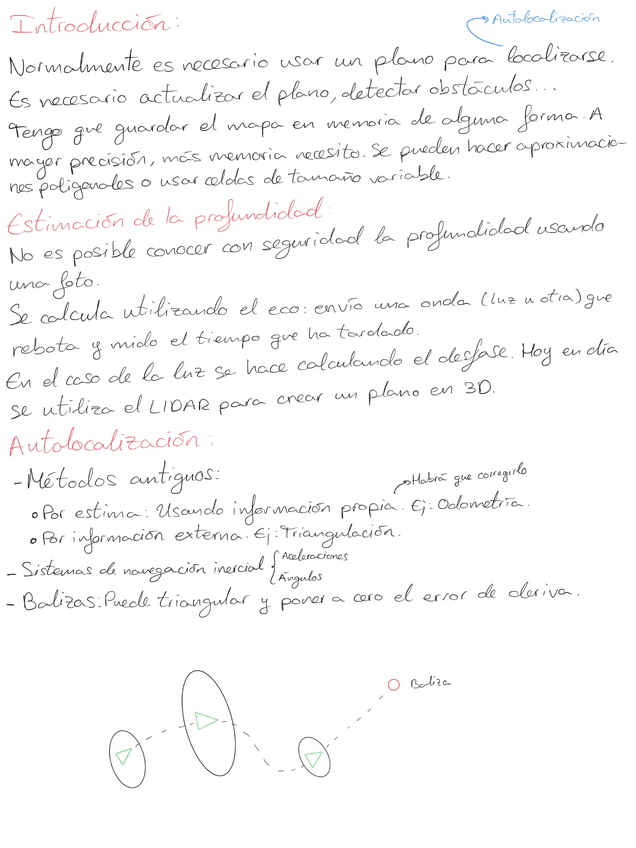 Introducción:
Autolocalización
Normalmente es necesario usar un plano para localizarse.
Es necesario actualizar el plano, detectar obstáculos...
Tengo que guardar el mapa en memoria de alguna forma. A
mayor precisión, más memoria necesito. Se pueden hacer aproximacio-
nes poligonales o usar celdas de tamaño variable.
Estimación de la profundidad:
No es posible conocer con seguridad la profundidad usando
una foto.
Se calcula utilizando el eco: envío una onda (luz u otra) que
rebota y mido el tiempo que ha tardado.
En el caso de la luz se hace calculando el desfase. Hoy en día
se utiliza el LIDAR para crear un plano en 3D.
Autolocalización:
- Métodos antiguos:
Habrá que corregirlo
• Por estima: Usando información propia. Ej: Odometría.
• Por información externa. Ej: Triangulación.
- Sistemas de navegación inercial { Aceleraciones
Ángulos
- Balizas: Puede triangular y poner a cero el error de deriva.
Baliza